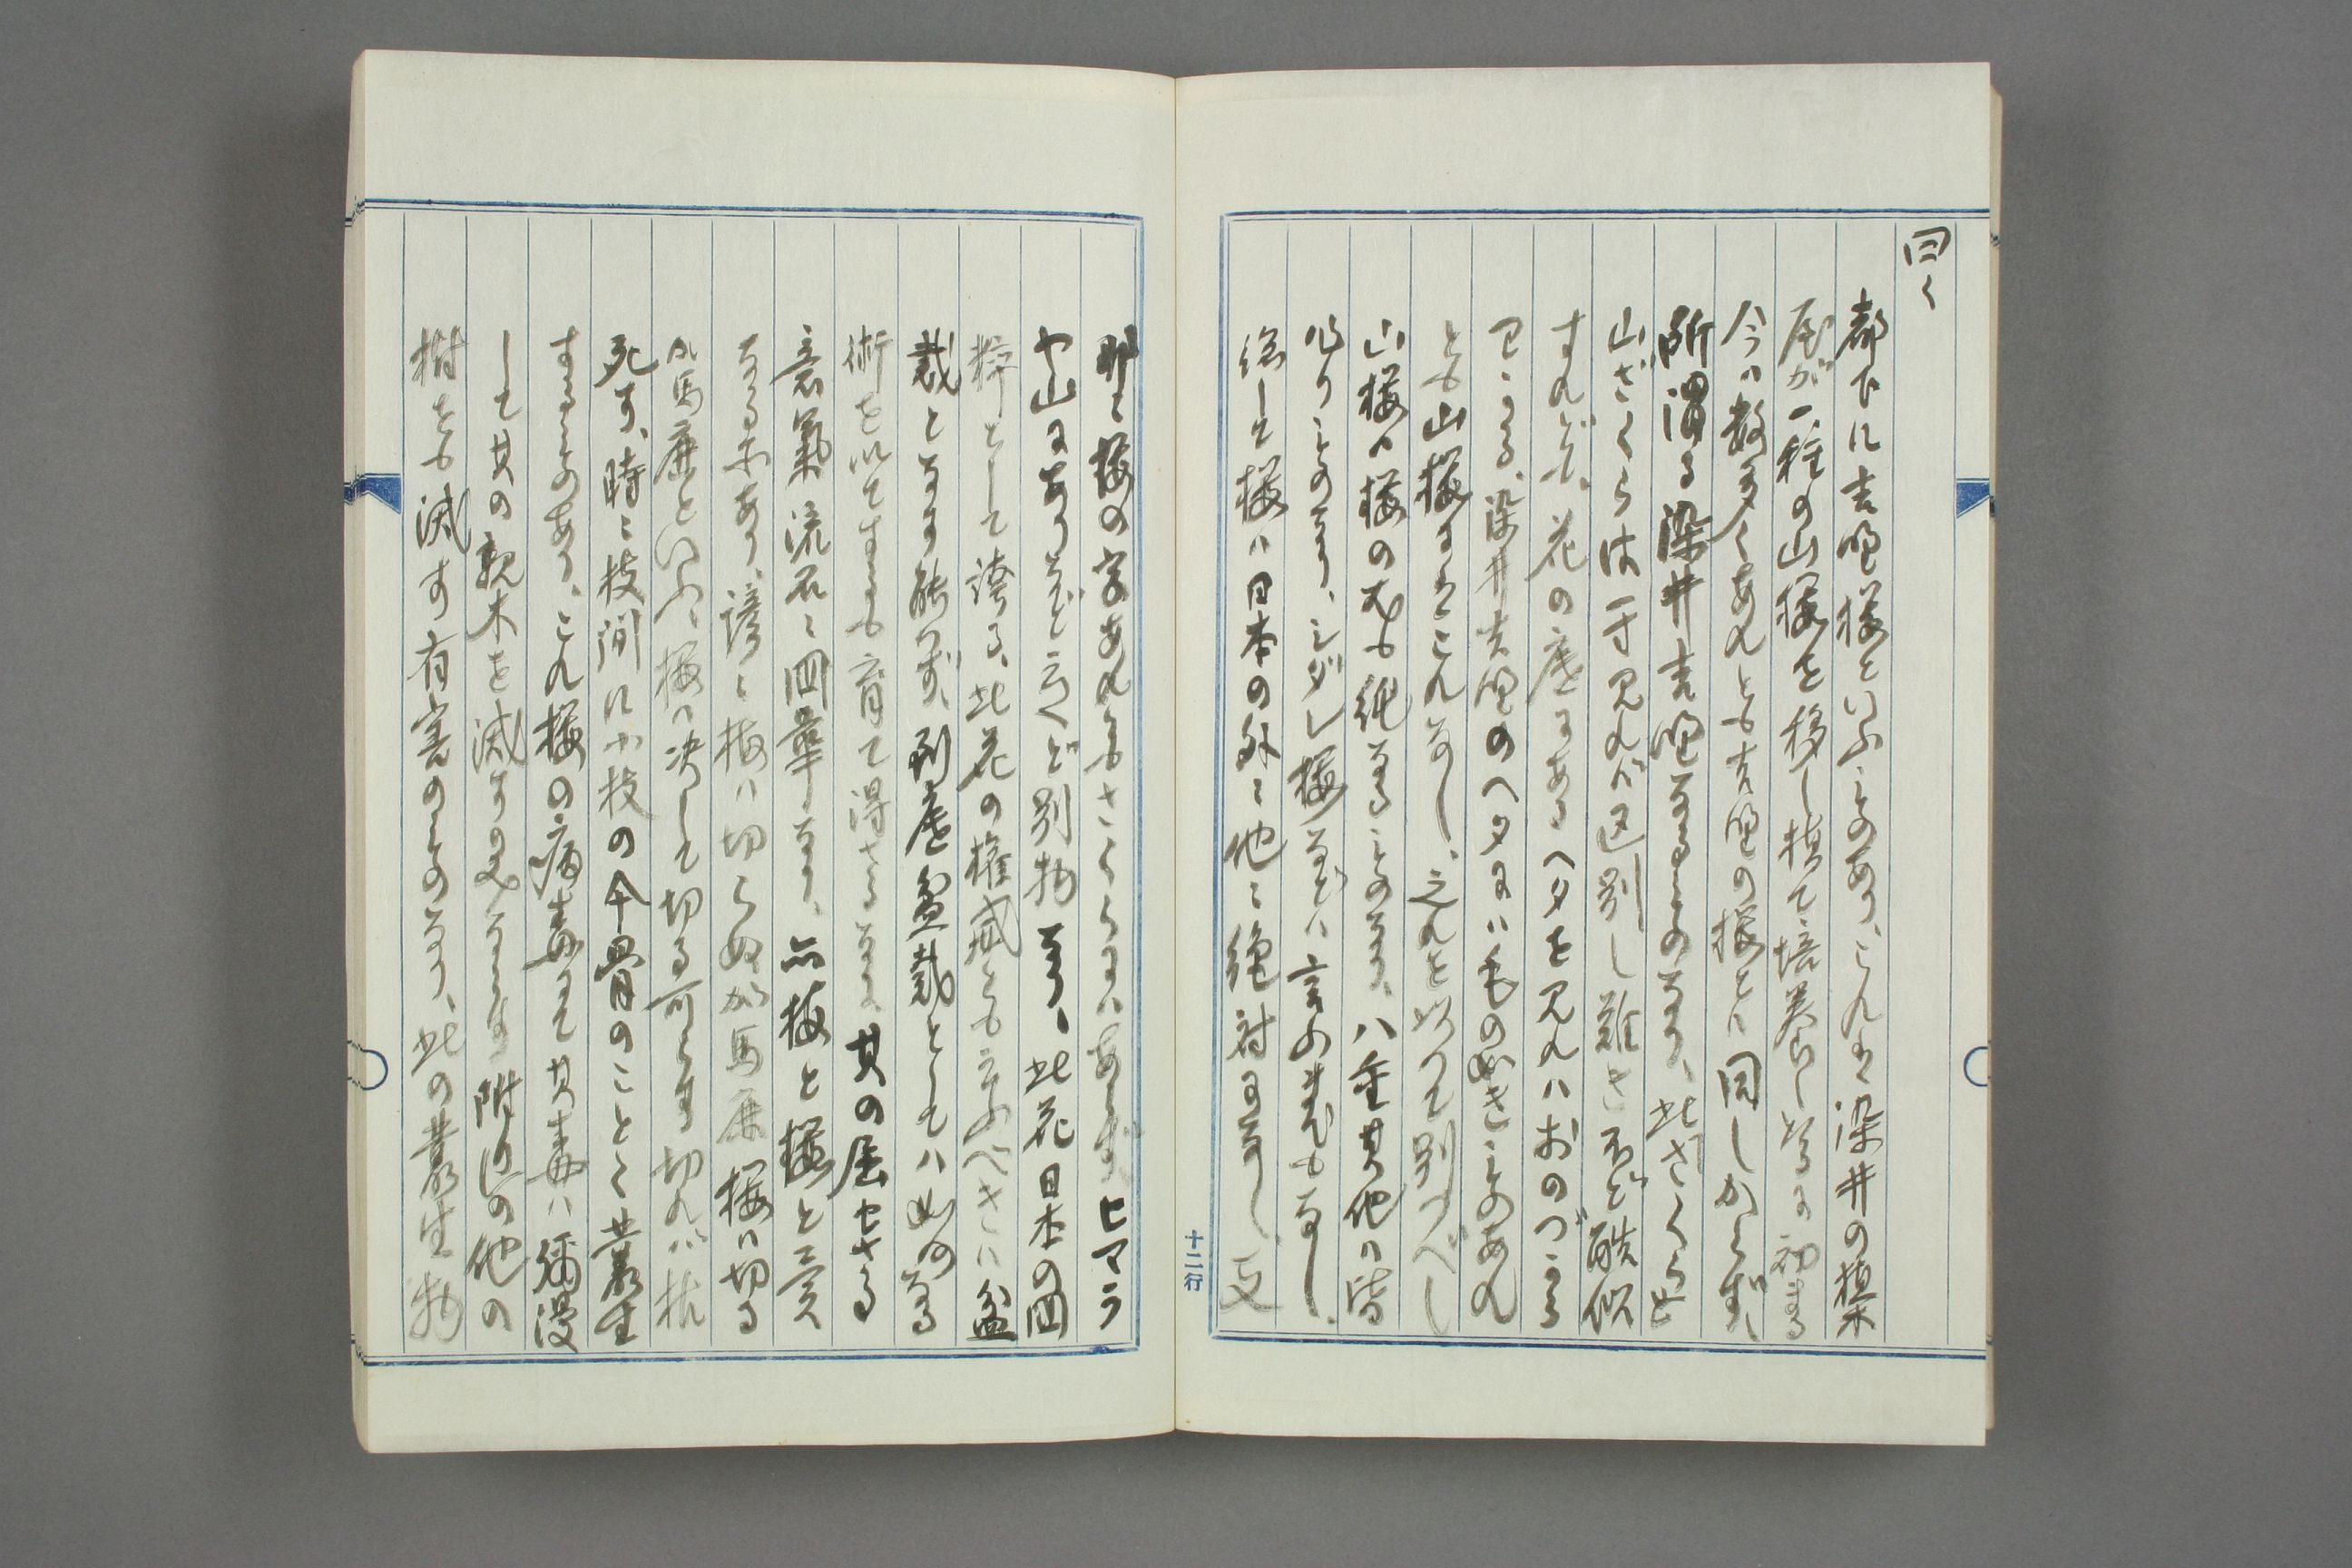 曰く
都下に吉野桜といふものあり、これは染井の植木
屋が一種の山桜を移し植て培養しいるに初まる
今ハ数多くあれとも吉野の桜とハ同しからず、
所謂る染井吉野なるものなり、此ざくらと
山ざくらは一寸見れバ区別し難きほど酷似
すれども、花の座にあるヘタを見れハおのづから
わかる、染井吉野のヘタにハ毛の如きものあれ
とも山桜にはこれなし、之れを以つて別つべし
山桜ハ桜の尤も純なるものなり、八重其他ハ皆
変りものなり、シダレ桜などハ言ふまでもなし、
総して桜ハ日本の外に他に絶対になし、支
那に桜の字あれどもさくらにハあらず、ヒマラ
ヤ山にありなど云へど別物なり、此花日本の国
粋として誇る、此花の権威とも云ふべきハ盆
栽となす能ハず、到底盆栽としてハ如何なる
術を以てするも育て得さるなり、其の屈せさる
意気流石に国華なり、亦梅と桜と異
なる所あり、諺に梅ハ切らぬが馬鹿桜ハ切る
が馬鹿といふ、桜ハ決して切る可らす切れバ枯
死す、時に枝間に小枝の牛骨のことく叢生
するものあり、これ桜の病毒にて其毒ハ弥漫
して其の親木を滅すのみならず附近の他の
樹をも滅す有害のものなり、此の叢生物
十二行